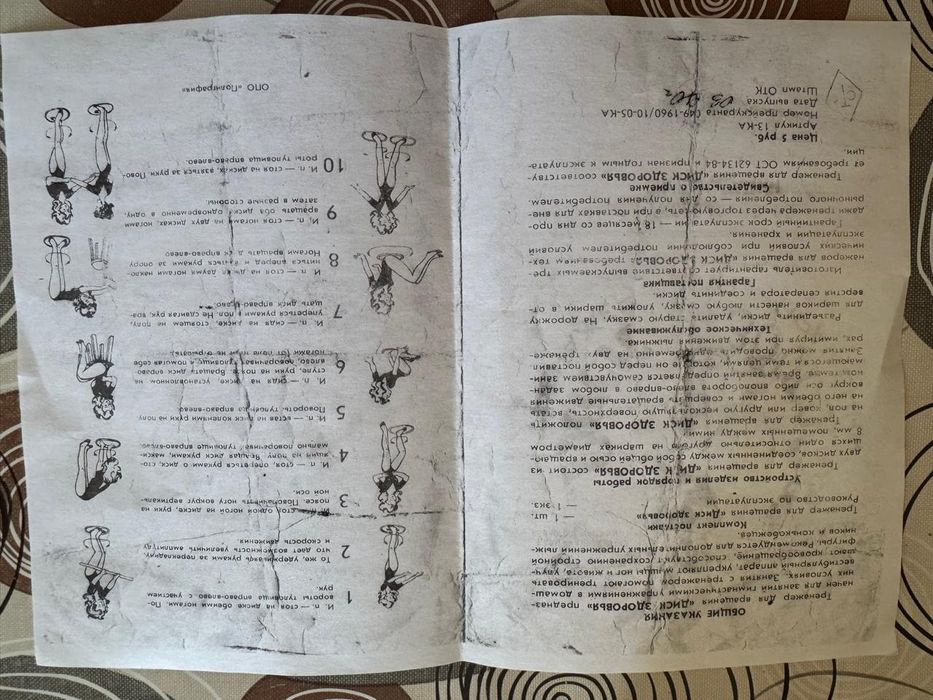 ОБЩИЕ УКАЗАНИЯ
Тренажер для вращения «ДИСК ЗДОРОВЬЯ» предназ-
начен для занятий гимнастическими упражнениями в домаш-
них условиях. Занятия с тренажером помогают тренировать
вестибулярный аппарат, укрепляют мышцы ног и живота, улуч-
шают кровообращение, способствуют сохранению стройной
фигуры. Рекомендуется для дополнительных упражнений лыж-
ников и конькобежцев.
Комплект поставки
Тренажер для вращения «Диск здоровья» — 1 шт.
Руководство по эксплуатации — 1 экз.
Устройство изделия и порядок работы
Тренажер для вращения «ДИСК ЗДОРОВЬЯ» состоит из
двух дисков, соединенных между собой общей осью и вращаю-
щихся один относительно другого на шариках диаметром
8 мм, помещенных между ними.
Тренажер для вращения «ДИСК ЗДОРОВЬЯ» положить
на пол, ковер или другую нескользящую поверхность, встать
на него обеими ногами и совершать вращательные движения
вокруг оси либо вполоборота влево-вправо в любом задан-
ном темпе. Время занятий определяется самочувствием зани-
мающегося и теми целями, которые он перед собой поставил.
Занятия можно проводить одновременно на двух тренаже-
рах, имитируя при этом движения лыжника.
Техническое обслуживание
Разъединить диски, удалить старую смазку. На дорожку
для шариков нанести любую смазку, уложить шарики в от-
верстия сепаратора и соединить диски.
Гарантия поставщика
Изготовитель гарантирует соответствие выпускаемых тре-
нажеров для вращения «ДИСК ЗДОРОВЬЯ» требованиям тех-
нических условий при соблюдении потребителем условий
эксплуатации и хранения.
Гарантийный срок эксплуатации — 18 месяцев со дня про-
дажи тренажера через торговую сеть, а при поставках для вне-
рыночного потребления — со дня получения потребителем.
Свидетельство о приемке
Тренажер для вращения «ДИСК ЗДОРОВЬЯ» соответству-
ет требованиям ОСТ 62134-84 и признан годным к эксплуата-
ции.
Цена 5 руб.
Артикул 13-КА
Номер прейскуранта 049-1960/10-05-КА
Дата выпуска
Штамп ОТК
1
И. п. — стоя на диске обеими ногами. По-
вороты туловища вправо-влево с участием
рук.
2
То же, удерживаясь руками за перекладину,
что дает возможность увеличить амплитуду
и скорость движения.
3
И. п. — стоя одной ногой на диске, руки на
поясе. Поворачивать ногу вокруг вертикаль-
ной оси.
4
И. п. — стоя, опереться руками о диск, стоя-
щий на полу. Вращая диск руками, макси-
мально поворачивать туловище вправо-влево.
5
И. п. — встав на диск коленями руки на полу.
Повороты туловища вправо-влево.
6
И. п. — сидя на диске, установленном на
стуле, руки на поясе. Вращать диск вправо-
влево, поворачивая туловище и помогая себе
ногами (от пола ноги не отрывать).
7
И. п. — сидя на диске, стоящем на полу,
упереться руками в пол. Не сдвигая рук, вра-
щать диск вправо-влево.
8
И. п. — стоя на диске двумя ногами накло-
ниться вперед и взяться руками за опору
Ногами вращать диск вправо-влево
9
И. п. — стоя ногами на двух дисках, ногами
вращать оба диска одновременно в одну,
затем в разные стороны.
10
И. п. — стоя на дисках, взяться за руки. Пово-
роты туловища вправо-влево.
ОПО «Полиграфия»